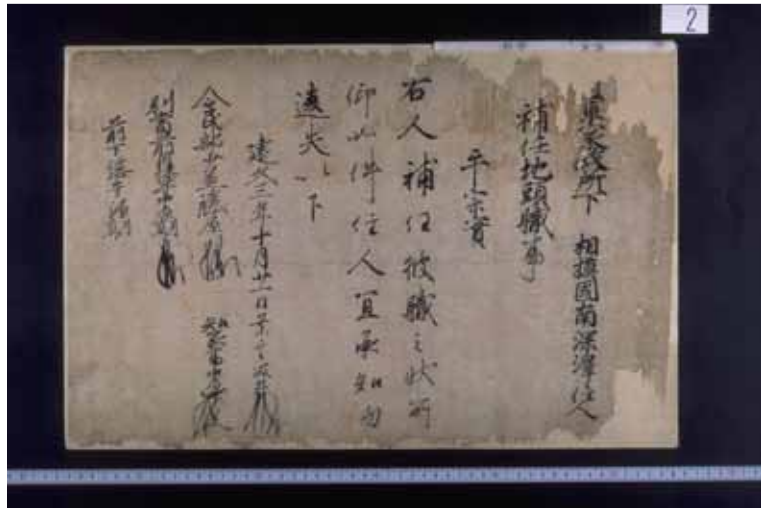 2
将軍家政所下 相模国南深澤住人
補任地頭職事
平宗實
右人補任彼職之状所
仰如件住人宜承知勿
違失以下
建久三年十月廿一日案主藤井
令民部少丞藤原 知家事中原
別當前因幡守中原朝臣
前下総守源朝臣